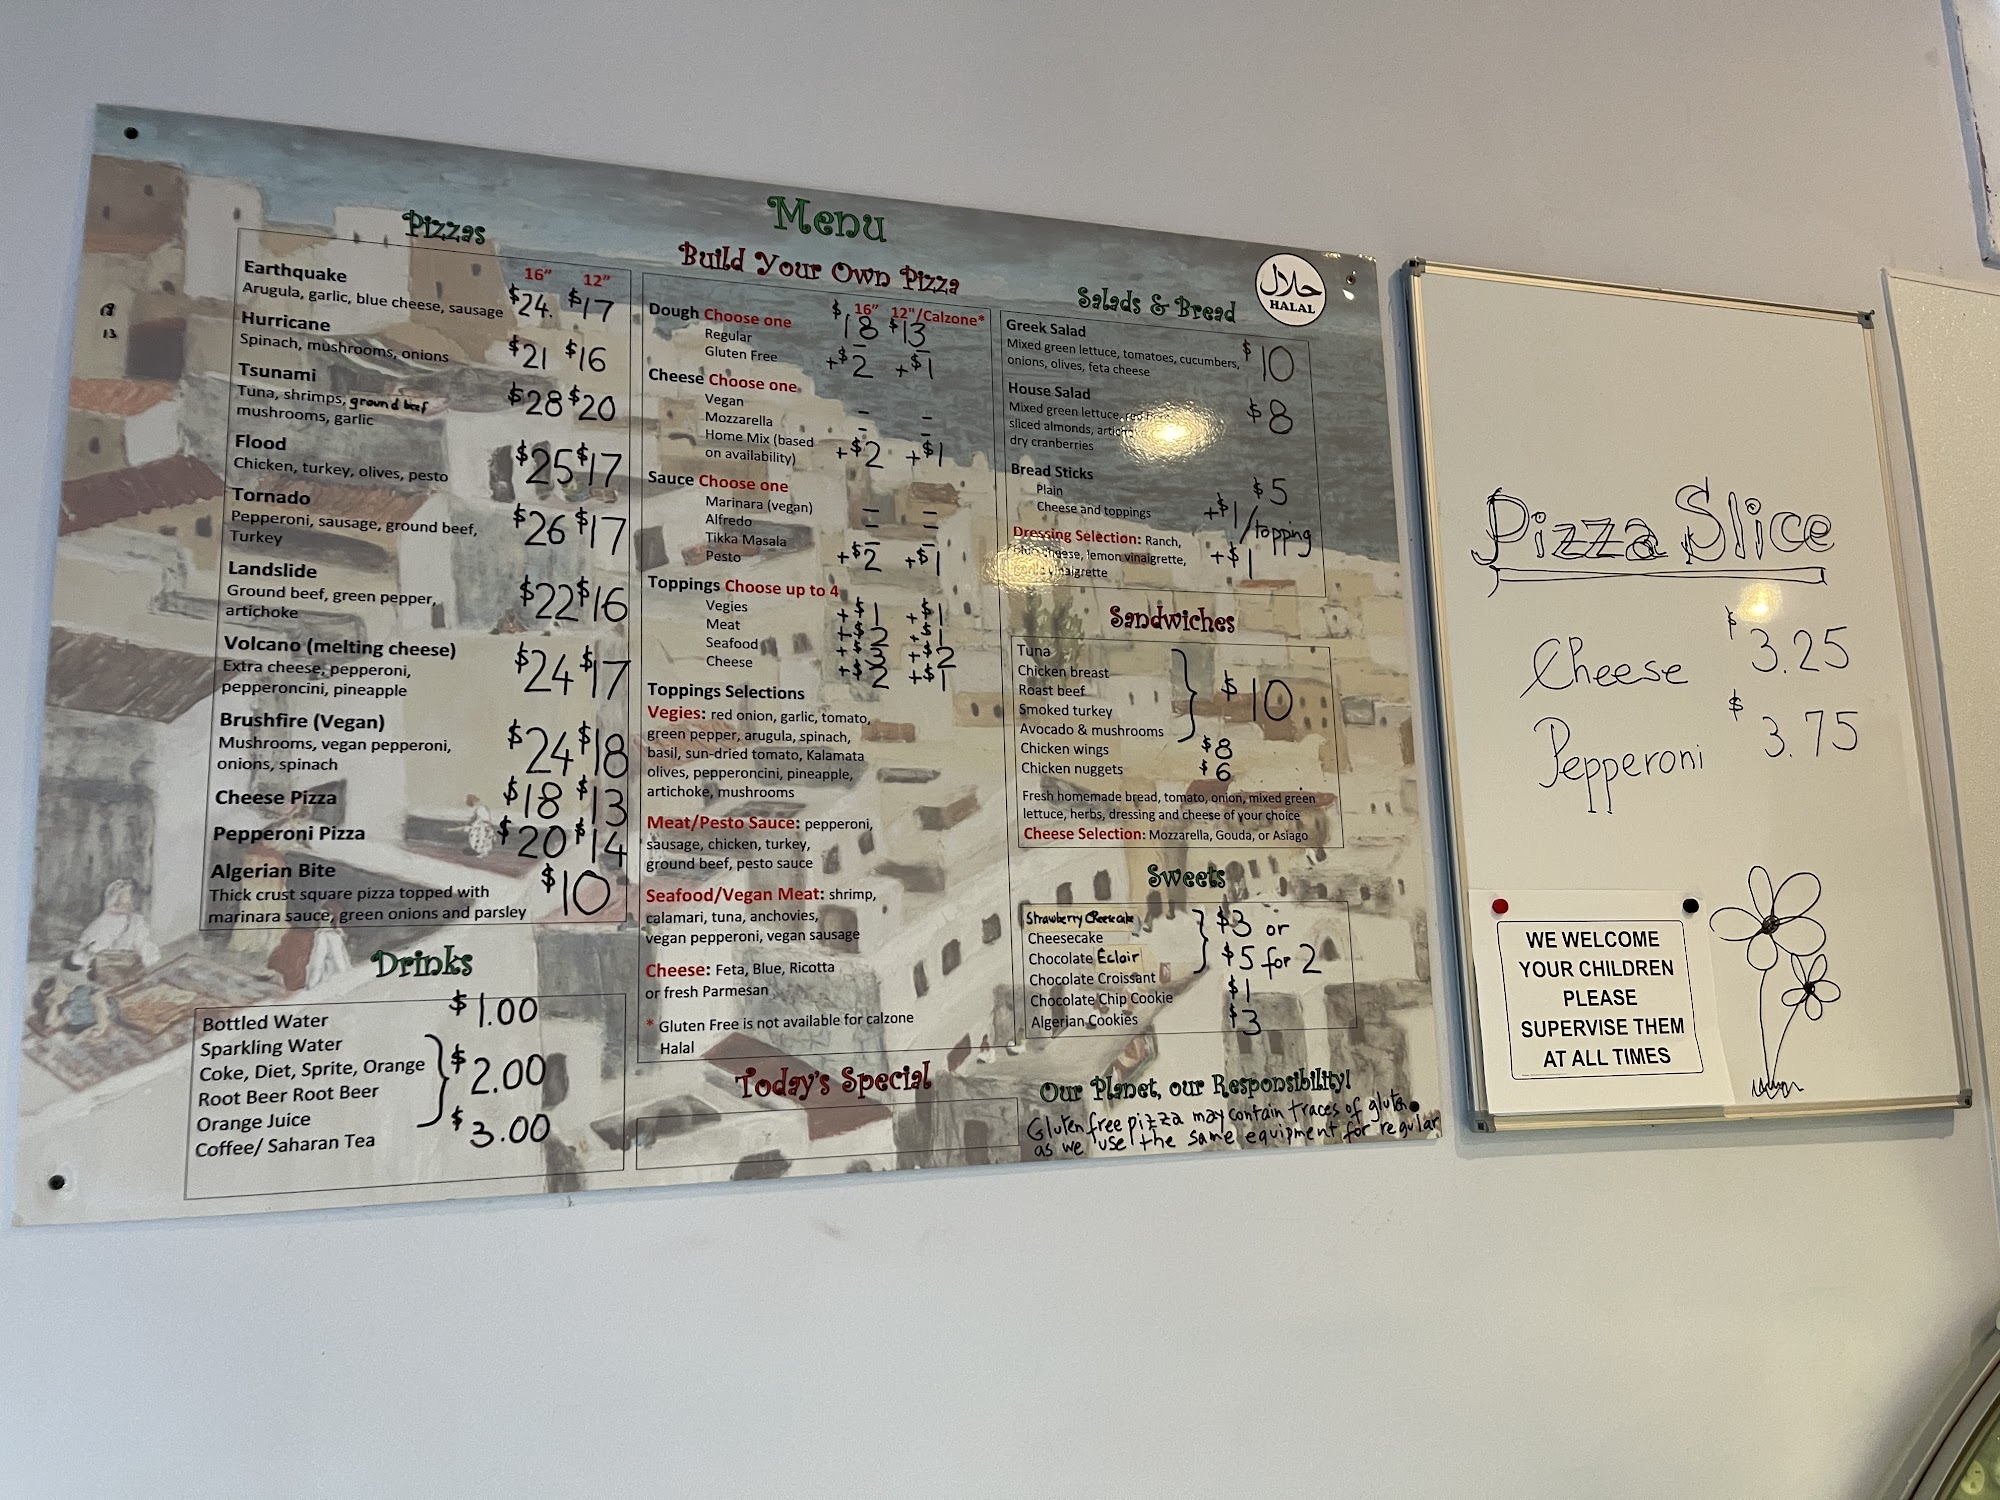 Menu
Pizzas
16" 12"
Earthquake $24. $17
Arugula, garlic, blue cheese, sausage
Hurricane $21 $16
Spinach, mushrooms, onions
Tsunami $28 $20
Tuna, shrimps, ground beef
mushrooms, garlic
Flood $25 $17
Chicken, turkey, olives, pesto
Tornado $26 $17
Pepperoni, sausage, ground beef,
Turkey
Landslide $22 $16
Ground beef, green pepper,
artichoke
Volcano (melting cheese) $24 $17
Extra cheese, pepperoni,
pepperoncini, pineapple
Brushfire (Vegan) $24 $18
Mushrooms, vegan pepperoni,
onions, spinach
Cheese Pizza $18 $13
Pepperoni Pizza $20 $14
Algerian Bite $10
Thick crust square pizza topped with
marinara sauce, green onions and parsley
Drinks
Bottled Water $1.00
Sparkling Water
Coke, Diet, Sprite, Orange $2.00
Root Beer Root Beer
Orange Juice
Coffee/ Saharan Tea $3.00
18
13
Build Your Own Pizza
16" 12"/Calzone*
Dough Choose one $18 $13
Regular – –
Gluten Free +$2 +$1
Cheese Choose one
Vegan – –
Mozzarella – –
Home Mix (based
on availability) +$2 +$1
Sauce Choose one
Marinara (vegan) – –
Alfredo – –
Tikka Masala – –
Pesto +$2 +$1
Toppings Choose up to 4
Vegies +$1 +$1
Meat +$2 +$1
Seafood +$3 +$2
Cheese +$2 +$1
Toppings Selections
Vegies: red onion, garlic, tomato,
green pepper, arugula, spinach,
basil, sun-dried tomato, Kalamata
olives, pepperoncini, pineapple,
artichoke, mushrooms
Meat/Pesto Sauce: pepperoni,
sausage, chicken, turkey,
ground beef, pesto sauce
Seafood/Vegan Meat: shrimp,
calamari, tuna, anchovies,
vegan pepperoni, vegan sausage
Cheese: Feta, Blue, Ricotta
or fresh Parmesan
* Gluten Free is not available for calzone
Halal
Today's Special
حلال
HALAL
Salads & Bread
Greek Salad $10
Mixed green lettuce, tomatoes, cucumbers,
onions, olives, feta cheese
House Salad $8
Mixed green lettuce, red
sliced almonds,
dry cranberries
Bread Sticks
Plain $5
Cheese and toppings +$1/topping
Dressing Selection: Ranch, +$1
cheese, lemon vinaigrette,
vinaigrette
Sandwiches
Tuna
Chicken breast
Roast beef $10
Smoked turkey
Avocado & mushrooms
Chicken wings $8
Chicken nuggets $6
Fresh homemade bread, tomato, onion, mixed green
lettuce, herbs, dressing and cheese of your choice
Cheese Selection: Mozzarella, Gouda, or Asiago
Sweets
Strawberry Cheesecake $3 or
Cheesecake
Chocolate Eclair $5 for 2
Chocolate Croissant
Chocolate Chip Cookie $1
Algerian Cookies $3
Our Planet, our Responsibility!
Gluten free pizza may contain traces of gluten
as we use the same equipment for regular
Pizza Slice
Cheese $3.25
Pepperoni $3.75
WE WELCOME
YOUR CHILDREN
PLEASE
SUPERVISE THEM
AT ALL TIMES